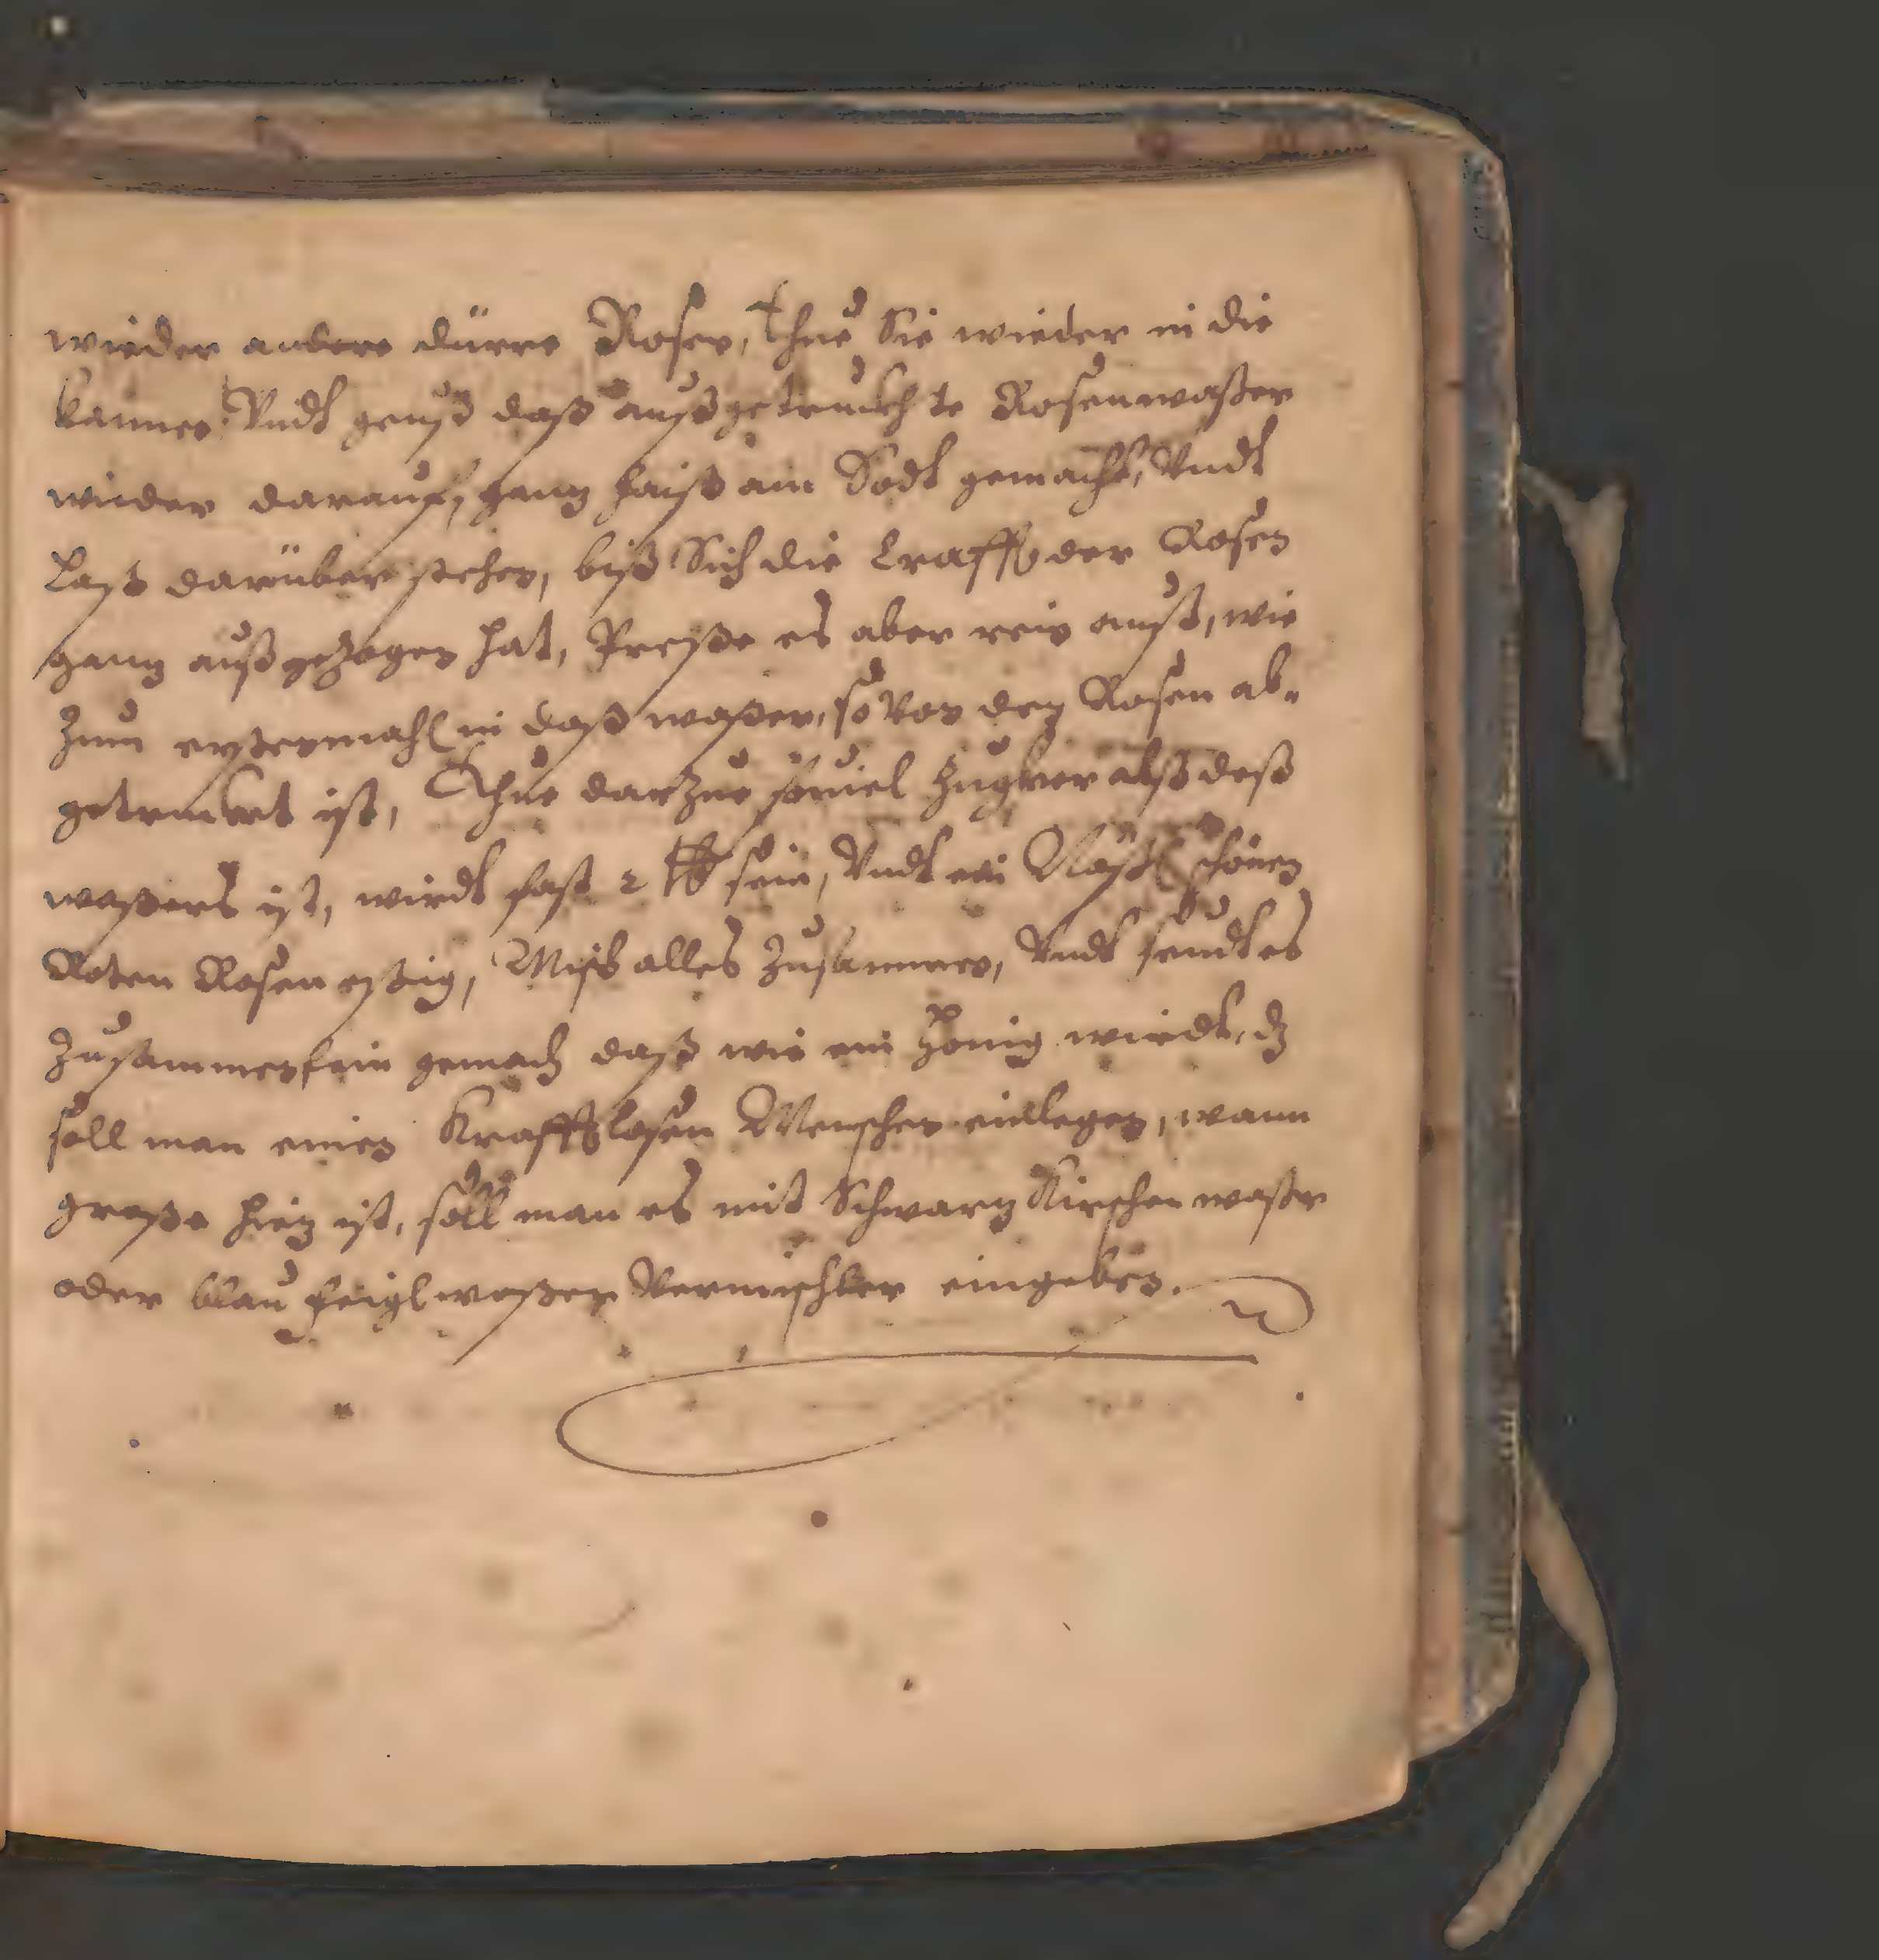 wieder andere dürre Rosen, thue Sie wieder in die
kannen Vndt geuß daß außgetruckhte Rosenwaßer
wieder darauf, ganz haiß am Sodt gemacht, Vndt
Laß darüber stehen, biß Sich die Crafft der Rosen
ganz außgezogen hat, Preße es aber rein auß, wie
zum erstenmahl in daß waßer, so von den Rosen ab-
getruckt ist, Thue darzue souiel Zugker alß deß
waßers ist, wirdt fast 2 ℔ sein, Vndt ein Näßl schönen
Roten Rosen eßig, Misch alles zusammen, Vndt seudt es
zusammen fein gemach daß wie ein Hönig wirdt, dz
soll man einen Krafftlosen Menschen eingeben, wann
große hiez ist, soll man es mit Schwarz Kirschen waßer
oder blau feigl waßer Vermischter eingeben.